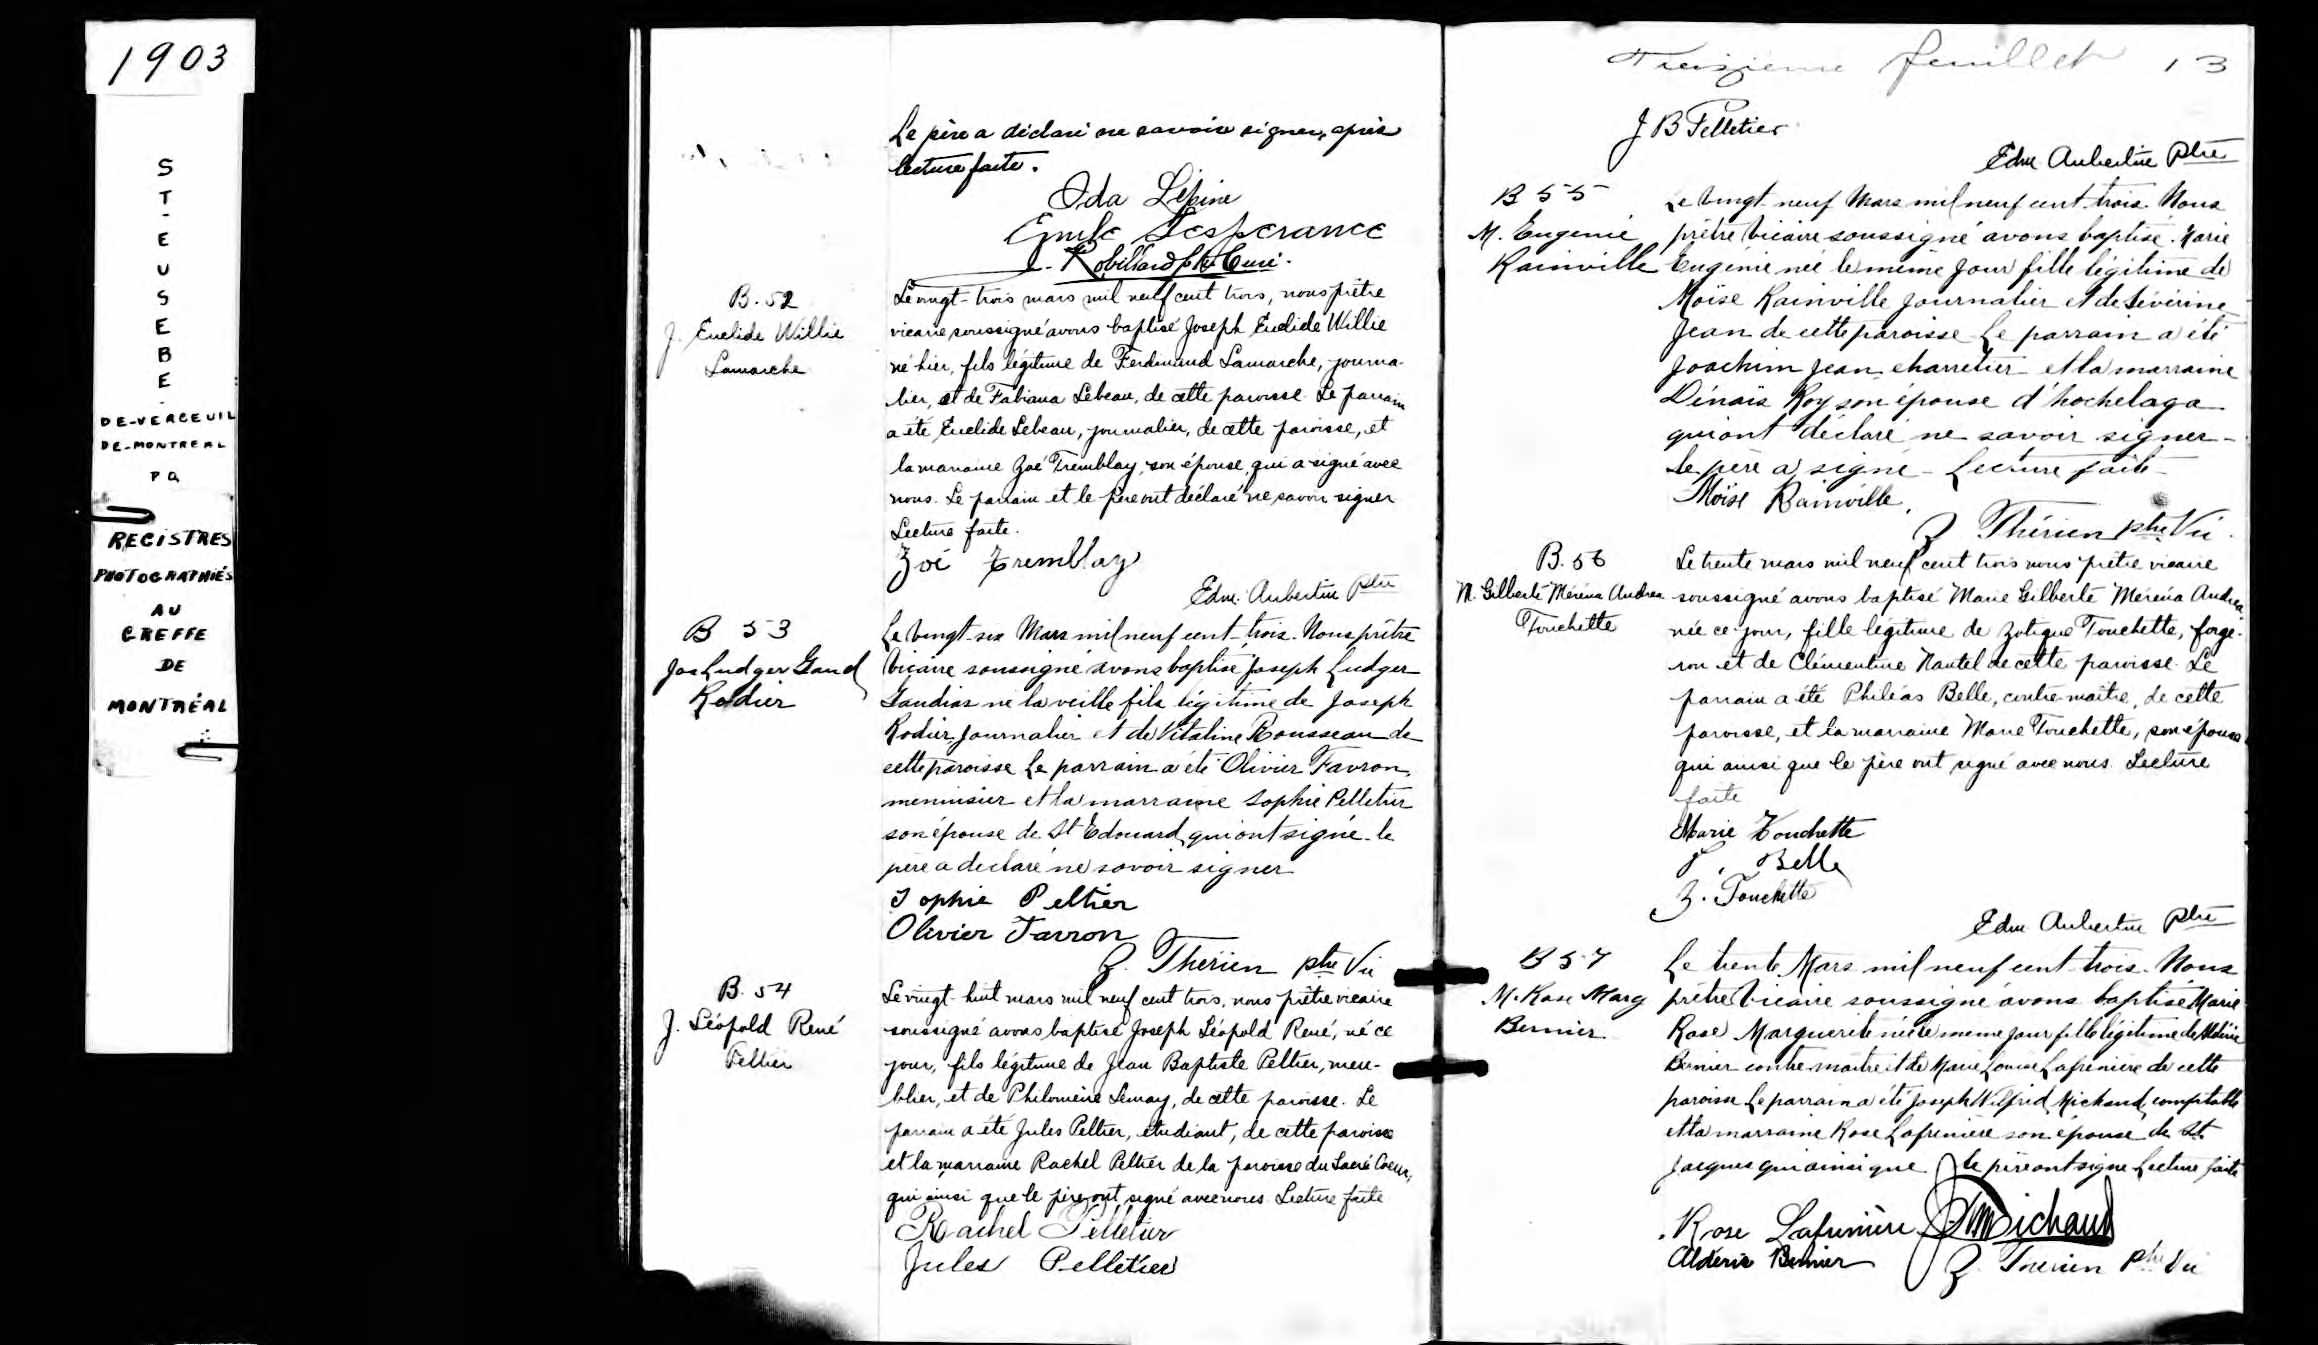 1903
ST-EUSEBE
DE-VERCEUIL
DE-MONTREAL
P Q
REGISTRES
PHOTOGRAPHIÉS
AU
GREFFE
DE
MONTRÉAL
Le père a déclaré ne savoir signer, après
lecture faite.
Oda Lépine
Emile Lesperance
Robillard Ptre Curé.
B. 52
J. Euclide Willie
Lamarche
Le vingt-trois mars mil neuf cent trois, nous prêtre
vicaire soussigné avons baptisé Joseph Euclide Willie
né hier, fils légitime de Ferdinand Lamarche, journa-
lier, et de Fabiana Lebeau, de cette paroisse. Le parrain
a été Euclide Lebeau, journalier, de cette paroisse, et
la marraine Zoé Tremblay, son épouse, qui a signé avec
nous. Le parrain et le père ont déclaré ne savoir signer
Lecture faite.
Zoé Tremblay
Edm. Aubertin ptre
B 53
Jos Ludger Gaud
Rodier
Le vingt-six Mars mil neuf cent-trois. Nous prêtre
vicaire soussigné avons baptisé Joseph Ludger
Gaudias né la veille fils légitime de Joseph
Rodier journalier et de Vitaline Rousseau de
cette paroisse Le parrain a été Olivier Favron,
menuisier et la marraine Sophie Pelletier
son épouse de St Edouard qui ont signé. le
père a déclaré ne savoir signer
Sophie Peltier
Olivier Favron
Z. Thérien ptre Vic
B. 54
J. Léopold René
Peltier
Le vingt-huit mars mil neuf cent trois, nous prêtre vicaire
soussigné avons baptisé Joseph Léopold René, né ce
jour, fils légitime de Jean Baptiste Peltier, meu-
blier, et de Philomène Lemay, de cette paroisse. Le
parrain a été Jules Peltier, étudiant, de cette paroisse
et la marraine Rachel Peltier de la paroisse du Sacré Coeur,
qui ainsi que le père ont signé avec nous. Lecture faite
Rachel Pelletier
Jules Pelletier
Treizième feuillet 13
J B Pelletier
Edm Aubertin Ptre
B 55
M. Eugenie
Rainville
Le vingt neuf Mars mil neuf cent-trois. Nous
prêtre vicaire soussigné avons baptisé. Marie
Eugénie née le même jour fille légitime de
Moïse Rainville journalier et de Sévérine
Jean de cette paroisse Le parrain a été
Joachim Jean charretier et la marraine
Dinaïs Roy son épouse d'hochelaga
qui ont déclaré ne savoir signer-
le père a signé - Lecture faite-
Moïse Rainville.
Z Thérien ptre Vic.
B. 56
M. Gilberte Méréna Andrea
Touchette
Le trente mars mil neuf cent trois nous prêtre vicaire
soussigné avons baptisé Marie Gilberte Méréna Andrea
née ce jour, fille légitime de Zotique Touchette, forge-
ron et de Clémentine Nantel de cette paroisse. Le
parrain a été Philéas Belle, contre-maître, de cette
paroisse, et la marraine Marie Touchette, son épouse
qui ainsi que le père ont signé avec nous. Lecture
faite
Marie Touchette
P. Belle
Z. Touchette
Edm Aubertin Ptre
B 57
M. Rose Marg
Bernier
Le trente Mars mil neuf cent-trois. Nous
prêtre vicaire soussigné avons baptisé Marie
Rose Marguerite née le même jour fille légitime de
Bernier contre-maître et de Marie Louise Lafrenière de cette
paroisse Le parrain a été Joseph Wilfrid Michaud, comptable
et la marraine Rose Lafrenière son épouse de St.
Jacques qui ainsi que le père ont signé Lecture faite
Rose Lafrenière Michaud
Aldéric Bernier Z. Thérien Ptre Vic